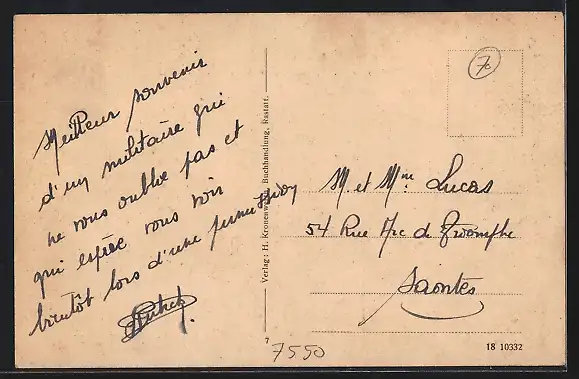 Meilleur souvenir
d'un militaire qui
ne vous oublie pas et
qui espère vous voir
bientôt lors d'une
Verlag: H. Kronenwerth, Buchhandlung, Rastatt.
70
M et Mme Lucas
54 Rue Arc de Triomphe
Saintes
7
7550
18 10332